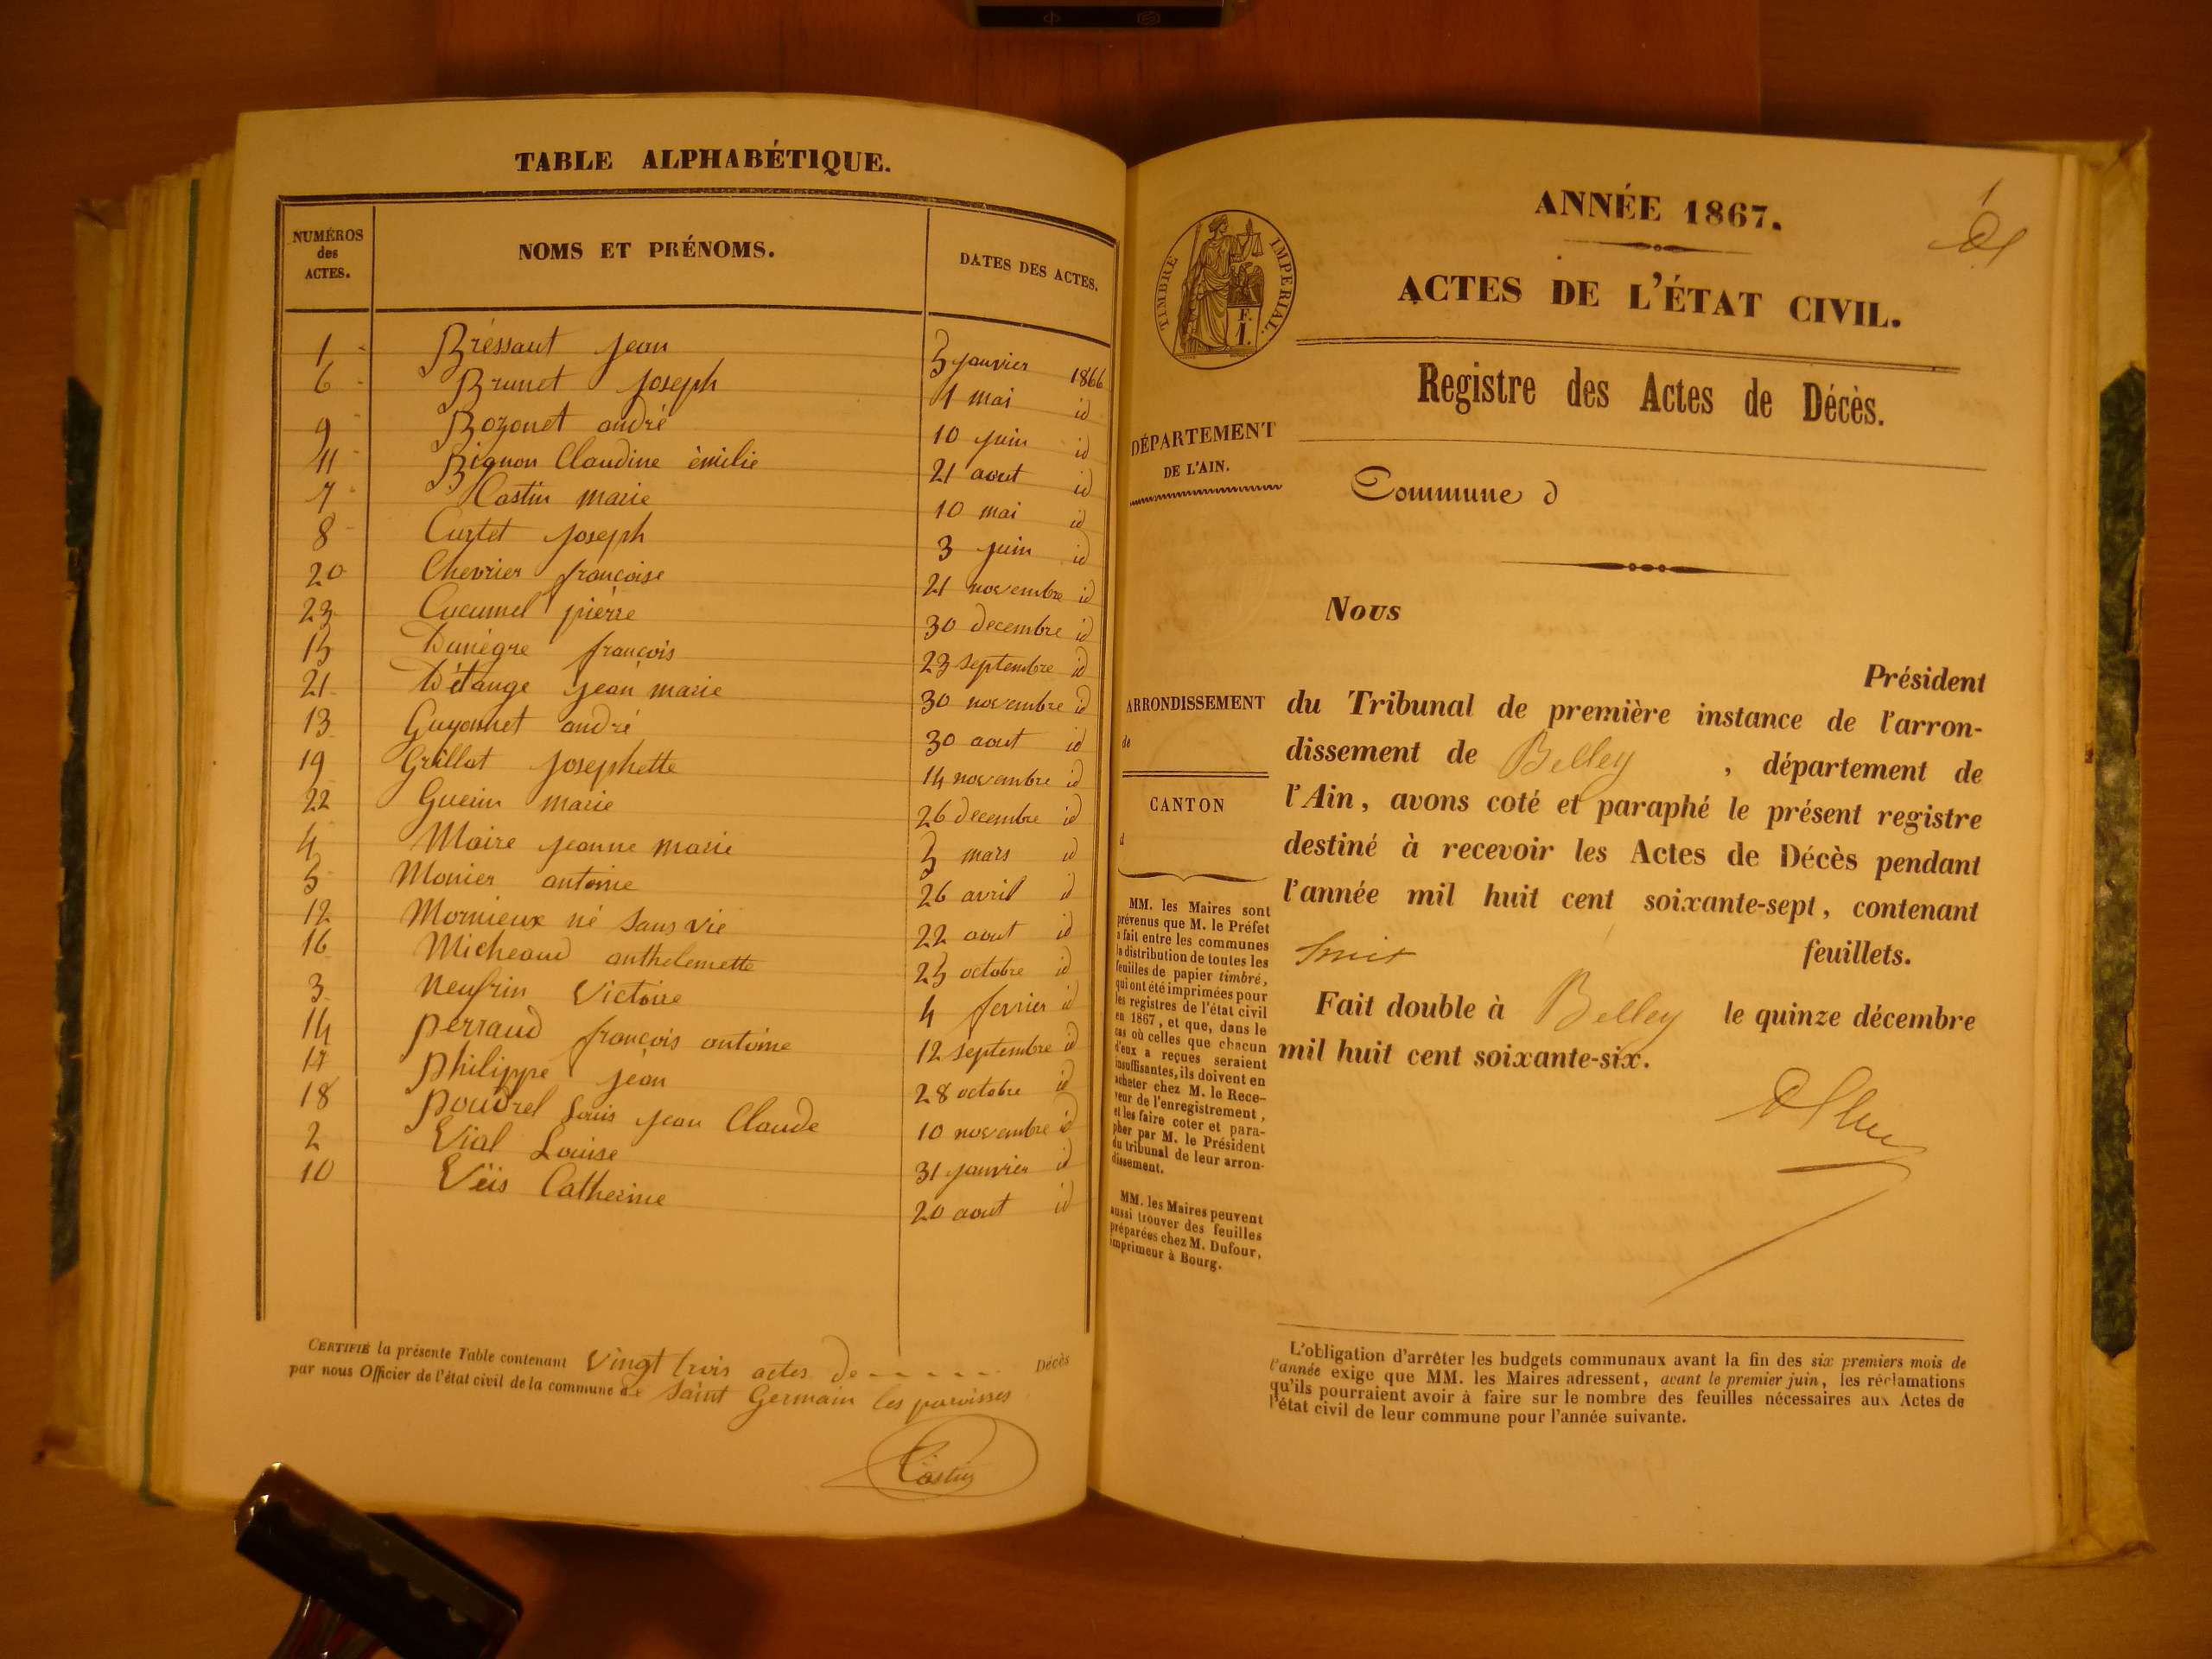 TABLE ALPHABÉTIQUE.
NUMÉROS des ACTES. NOMS ET PRÉNOMS. DATES DES ACTES.
1 Bressaut Jean 5 janvier 1866
6 Brunet Joseph 1 mai id
9 Bozonet andré 10 juin id
11 Bignon Claudine èmilie 21 aout id
7 Castin marie 10 mai id
8 Curtet Joseph 3 juin id
20 Chevrier françoise 21 novembre id
23 Cucumel pierre 30 decembre id
15 Dunègre françois 23 septembre id
21 D'étange jean marie 30 novembre id
13 Guyonnet andré 30 aout id
19 Grillot Josephette 14 novembre id
22 Guerin marie 26 decembre id
4 Maire jeanne marie 5 mars id
5 Monier antoine 26 avril id
12 Mornieux né sans vie 22 aout id
16 Micheaud anthelemette 25 octobre id
3 Neufrin Victoire 4 fevrier id
14 perraud françois antoine 12 septembre id
17 philippe jean 28 octobre id
18 poudrel Louis jean Claude 10 novembre id
2 Vial Louise 31 janvier id
10 Véis Catherine 20 aout id
CERTIFIÉ la présente Table contenant vingt trois actes de Décès
par nous Officier de l'état civil de la commune de Saint Germain les paroisses
Castin
1
ANNÉE 1867.
TIMBRE IMPÉRIAL.
F.
1.
ACTES DE L'ÉTAT CIVIL.
Registre des Actes de Décès.
DÉPARTEMENT
DE L'AIN.
Commune d
Nous
Président
ARRONDISSEMENT
de
CANTON
d
du Tribunal de première instance de l'arron-
dissement de Belley , département de
l'Ain, avons coté et paraphé le présent registre
destiné à recevoir les Actes de Décès pendant
l'année mil huit cent soixante-sept, contenant
huit feuillets.
Fait double à Belley le quinze décembre
mil huit cent soixante-six.
MM. les Maires sont
prévenus que M. le Préfet
a fait entre les communes
la distribution de toutes les
feuilles de papier timbré,
qui ont été imprimées pour
les registres de l'état civil
en 1867, et que, dans le
cas où celles que chacun
d'eux a reçues seraient
insuffisantes, ils doivent en
acheter chez M. le Rece-
veur de l'enregistrement,
et les faire coter et para-
pher par M. le Président
du tribunal de leur arron-
dissement.
MM. les Maires peuvent
aussi trouver des feuilles
préparées chez M. Dufour,
imprimeur à Bourg.
L'obligation d'arrêter les budgets communaux avant la fin des six premiers mois de
l'année exige que MM. les Maires adressent, avant le premier juin, les réclamations
qu'ils pourraient avoir à faire sur le nombre des feuilles nécessaires aux Actes de
l'état civil de leur commune pour l'année suivante.